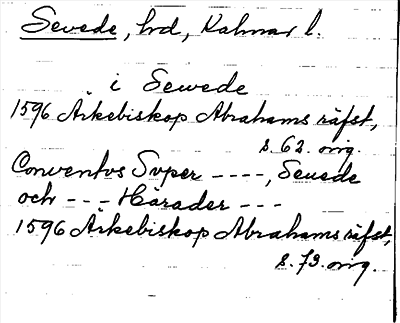 Sevede, hrd, Kalmar l.
i Sewede
1596 Ärkebiskop Abrahams räfst,
s. 62. orig.
Conventvs Svper ----, Seuede
och --- Härader ---
1596 Ärkebiskop Abrahams räfst,
s. 73. orig.